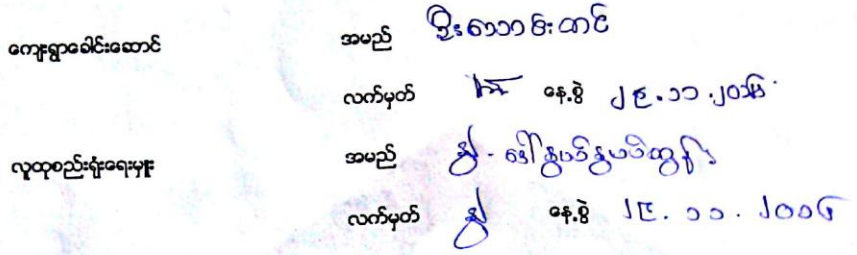 ကျေးရွာခေါင်းဆောင် အမည် ဦးသောင်းထင်
လက်မှတ် နေ့စွဲ ၂၉.၁၁.၂၀၁၆
လူထုစည်းရုံးရေးမှူး အမည် ဒေါ်နွယ်နွယ်ထွန်း
လက်မှတ် နေ့စွဲ ၂၉.၁၁.၂၀၁၆